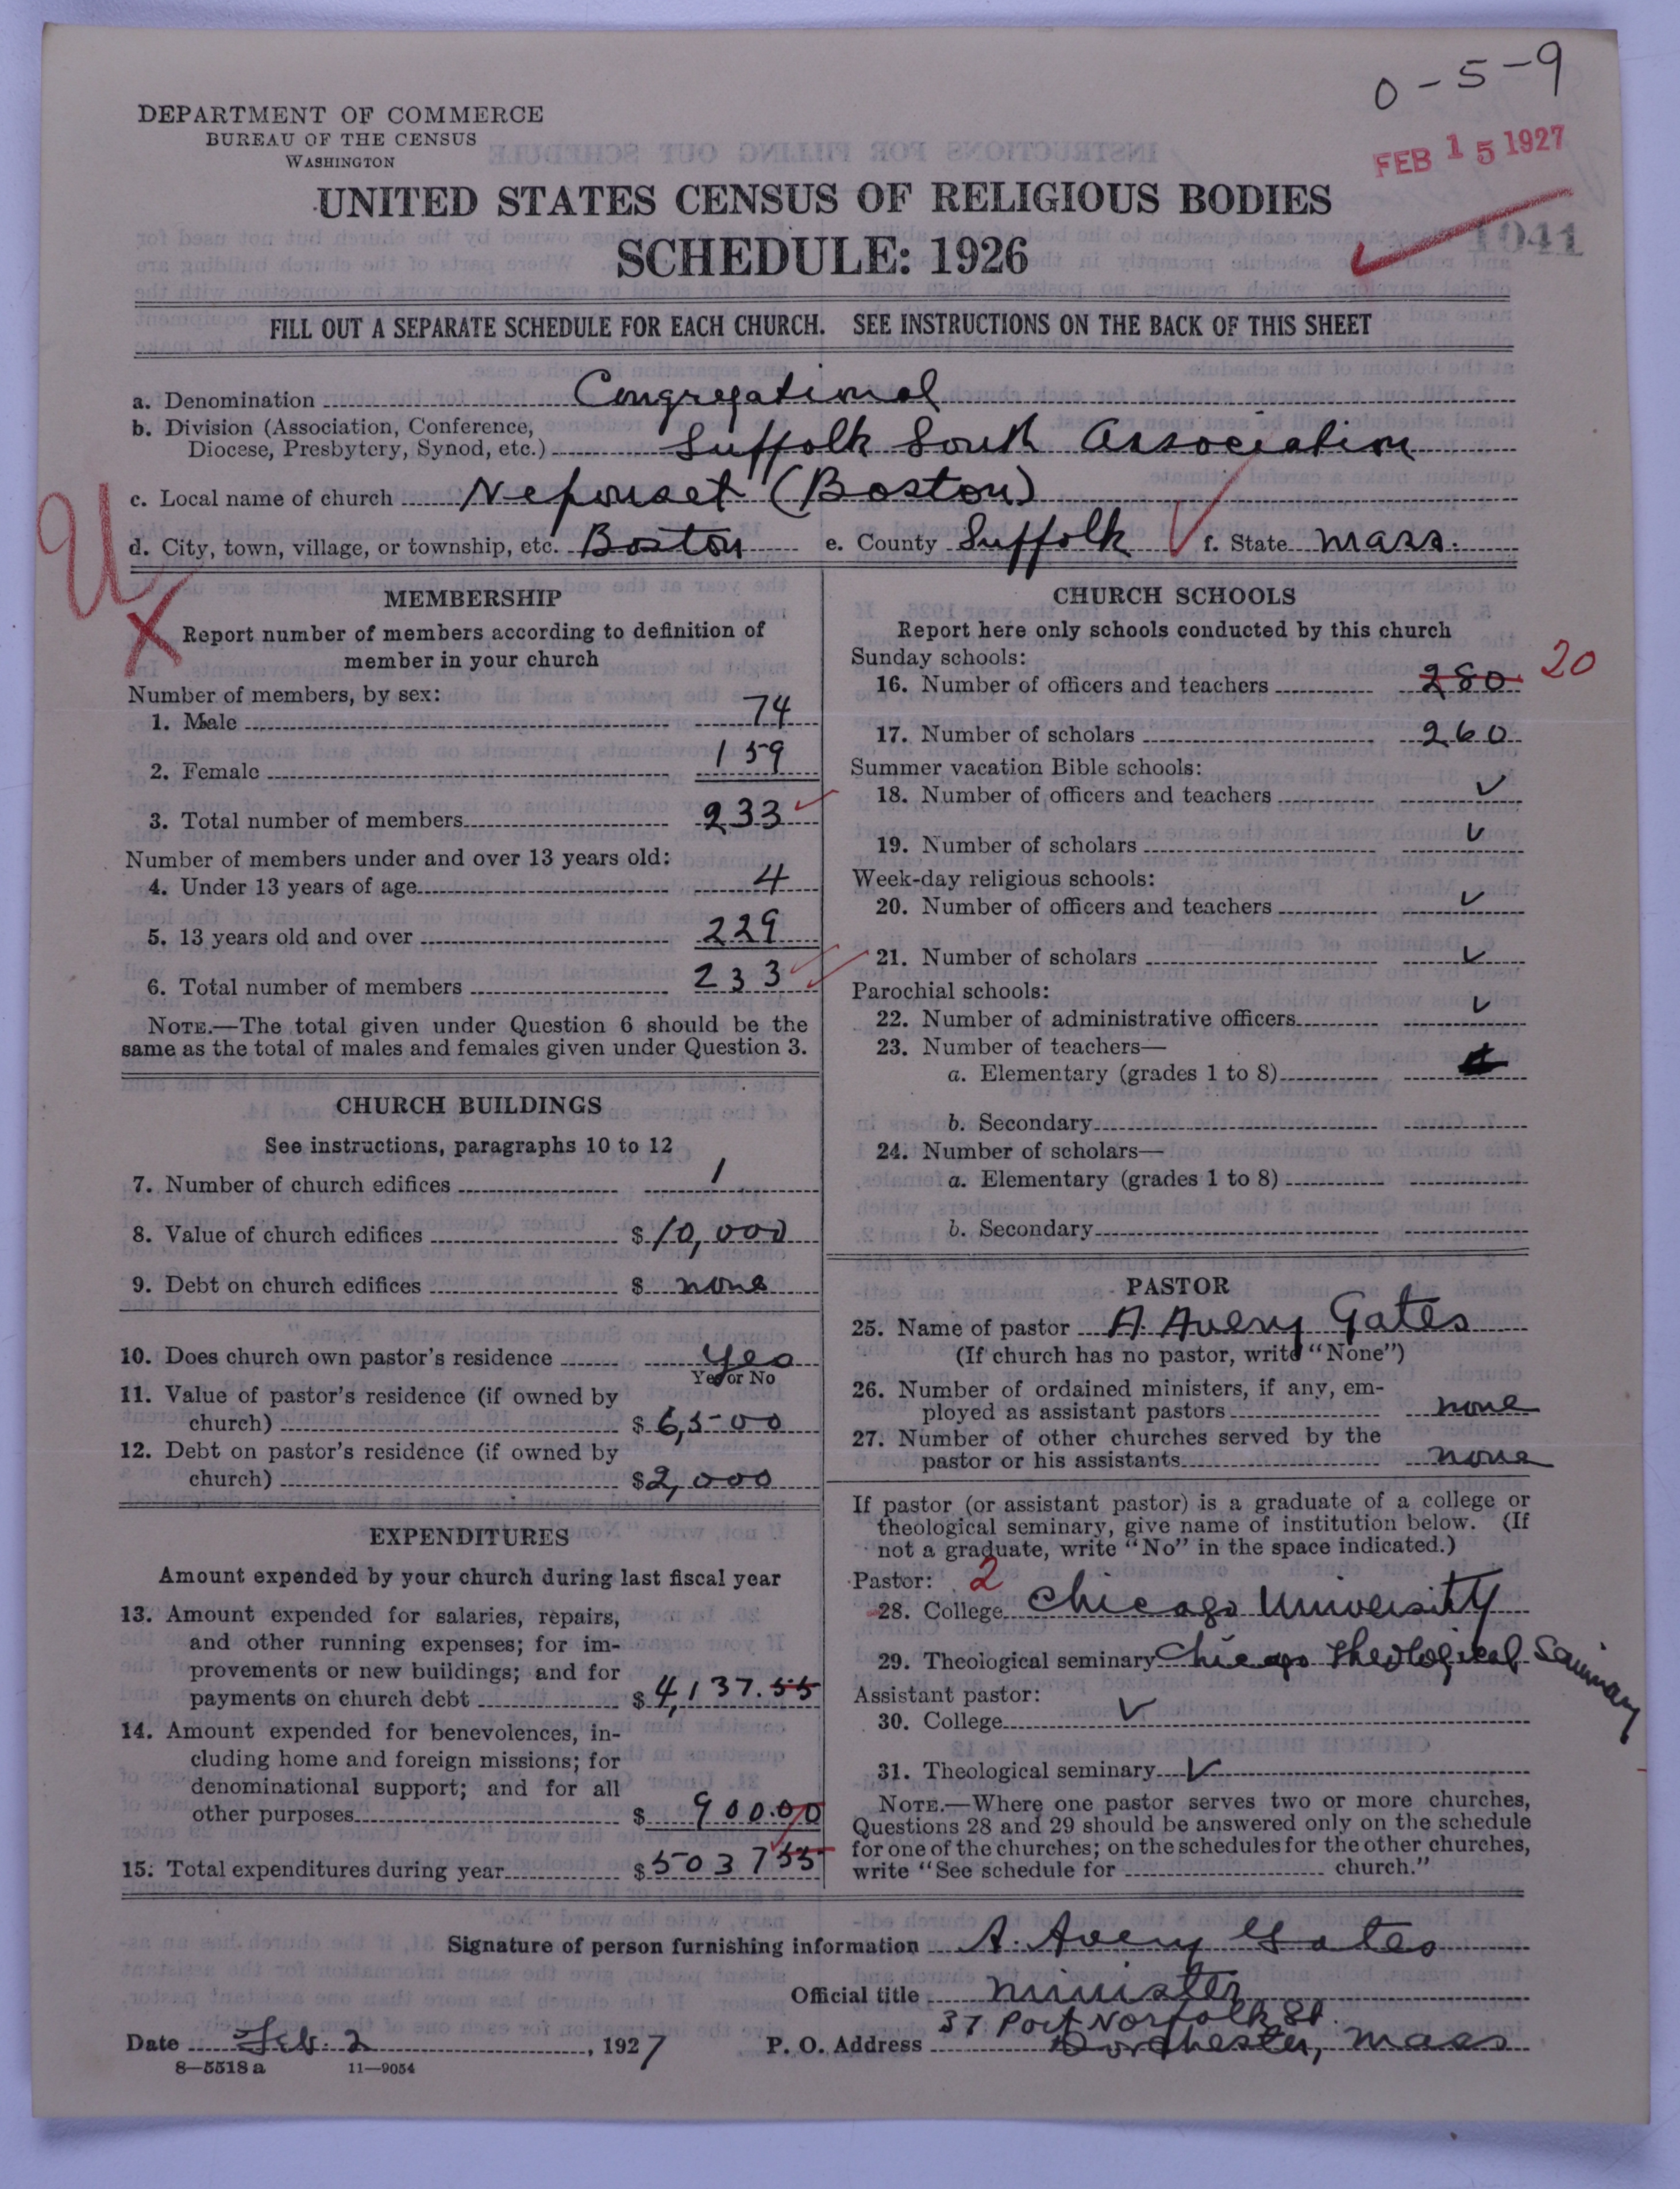 0-5-9
DEPARTMENT OF COMMERCE
BUREAU OF THE CENSUS
WASHINGTON
FEB 15 1927
UNITED STATES CENSUS OF RELIGIOUS BODIES
SCHEDULE: 1926
1041
FILL OUT A SEPARATE SCHEDULE FOR EACH CHURCH. SEE INSTRUCTIONS ON THE BACK OF THIS SHEET
a. Denomination Congregational
b. Division (Association, Conference,
Diocese, Presbytery, Synod, etc.) Suffolk South Association
c. Local name of church Neponset (Boston)
d. City, town, village, or township, etc. Boston e. County Suffolk f. State Mass.
MEMBERSHIP
Report number of members according to definition of
member in your church
Number of members, by sex:
1. Male 74
2. Female 159
3. Total number of members 233
Number of members under and over 13 years old:
4. Under 13 years of age 4
5. 13 years old and over 229
6. Total number of members 233
NOTE.—The total given under Question 6 should be the
same as the total of males and females given under Question 3.
CHURCH BUILDINGS
See instructions, paragraphs 10 to 12
7. Number of church edifices 1
8. Value of church edifices $10,000
9. Debt on church edifices $ none
10. Does church own pastor's residence yes
Yes or No
11. Value of pastor's residence (if owned by
church) $6,500
12. Debt on pastor's residence (if owned by
church) $2,000
EXPENDITURES
Amount expended by your church during last fiscal year
13. Amount expended for salaries, repairs,
and other running expenses; for im-
provements or new buildings; and for
payments on church debt $4,137.55
14. Amount expended for benevolences, in-
cluding home and foreign missions; for
denominational support; and for all
other purposes $ 900.00
15. Total expenditures during year $503755
CHURCH SCHOOLS
Report here only schools conducted by this church
Sunday schools:
16. Number of officers and teachers 280 20
17. Number of scholars 260
Summer vacation Bible schools:
18. Number of officers and teachers ✓
19. Number of scholars ✓
Week-day religious schools:
20. Number of officers and teachers ✓
21. Number of scholars ✓
Parochial schools:
22. Number of administrative officers ✓
23. Number of teachers—
a. Elementary (grades 1 to 8)
b. Secondary
24. Number of scholars—
a. Elementary (grades 1 to 8)
b. Secondary
PASTOR
25. Name of pastor A Avery Gates
(If church has no pastor, write "None")
26. Number of ordained ministers, if any, em-
ployed as assistant pastors none
27. Number of other churches served by the
pastor or his assistants none
If pastor (or assistant pastor) is a graduate of a college or
theological seminary, give name of institution below. (If
not a graduate, write "No" in the space indicated.)
Pastor: 2
28. College Chicago University
29. Theological seminary Chicago Theological Seminary
Assistant pastor:
30. College ✓
31. Theological seminary ✓
NOTE.—Where one pastor serves two or more churches,
Questions 28 and 29 should be answered only on the schedule
for one of the churches; on the schedules for the other churches,
write "See schedule for church."
Signature of person furnishing information A. Avery Gates
Official title minister
37 Port Norfolk St.
Date Feb. 2, 1927 P. O. Address Dorchester, Mass
8—5518 a 11—9054